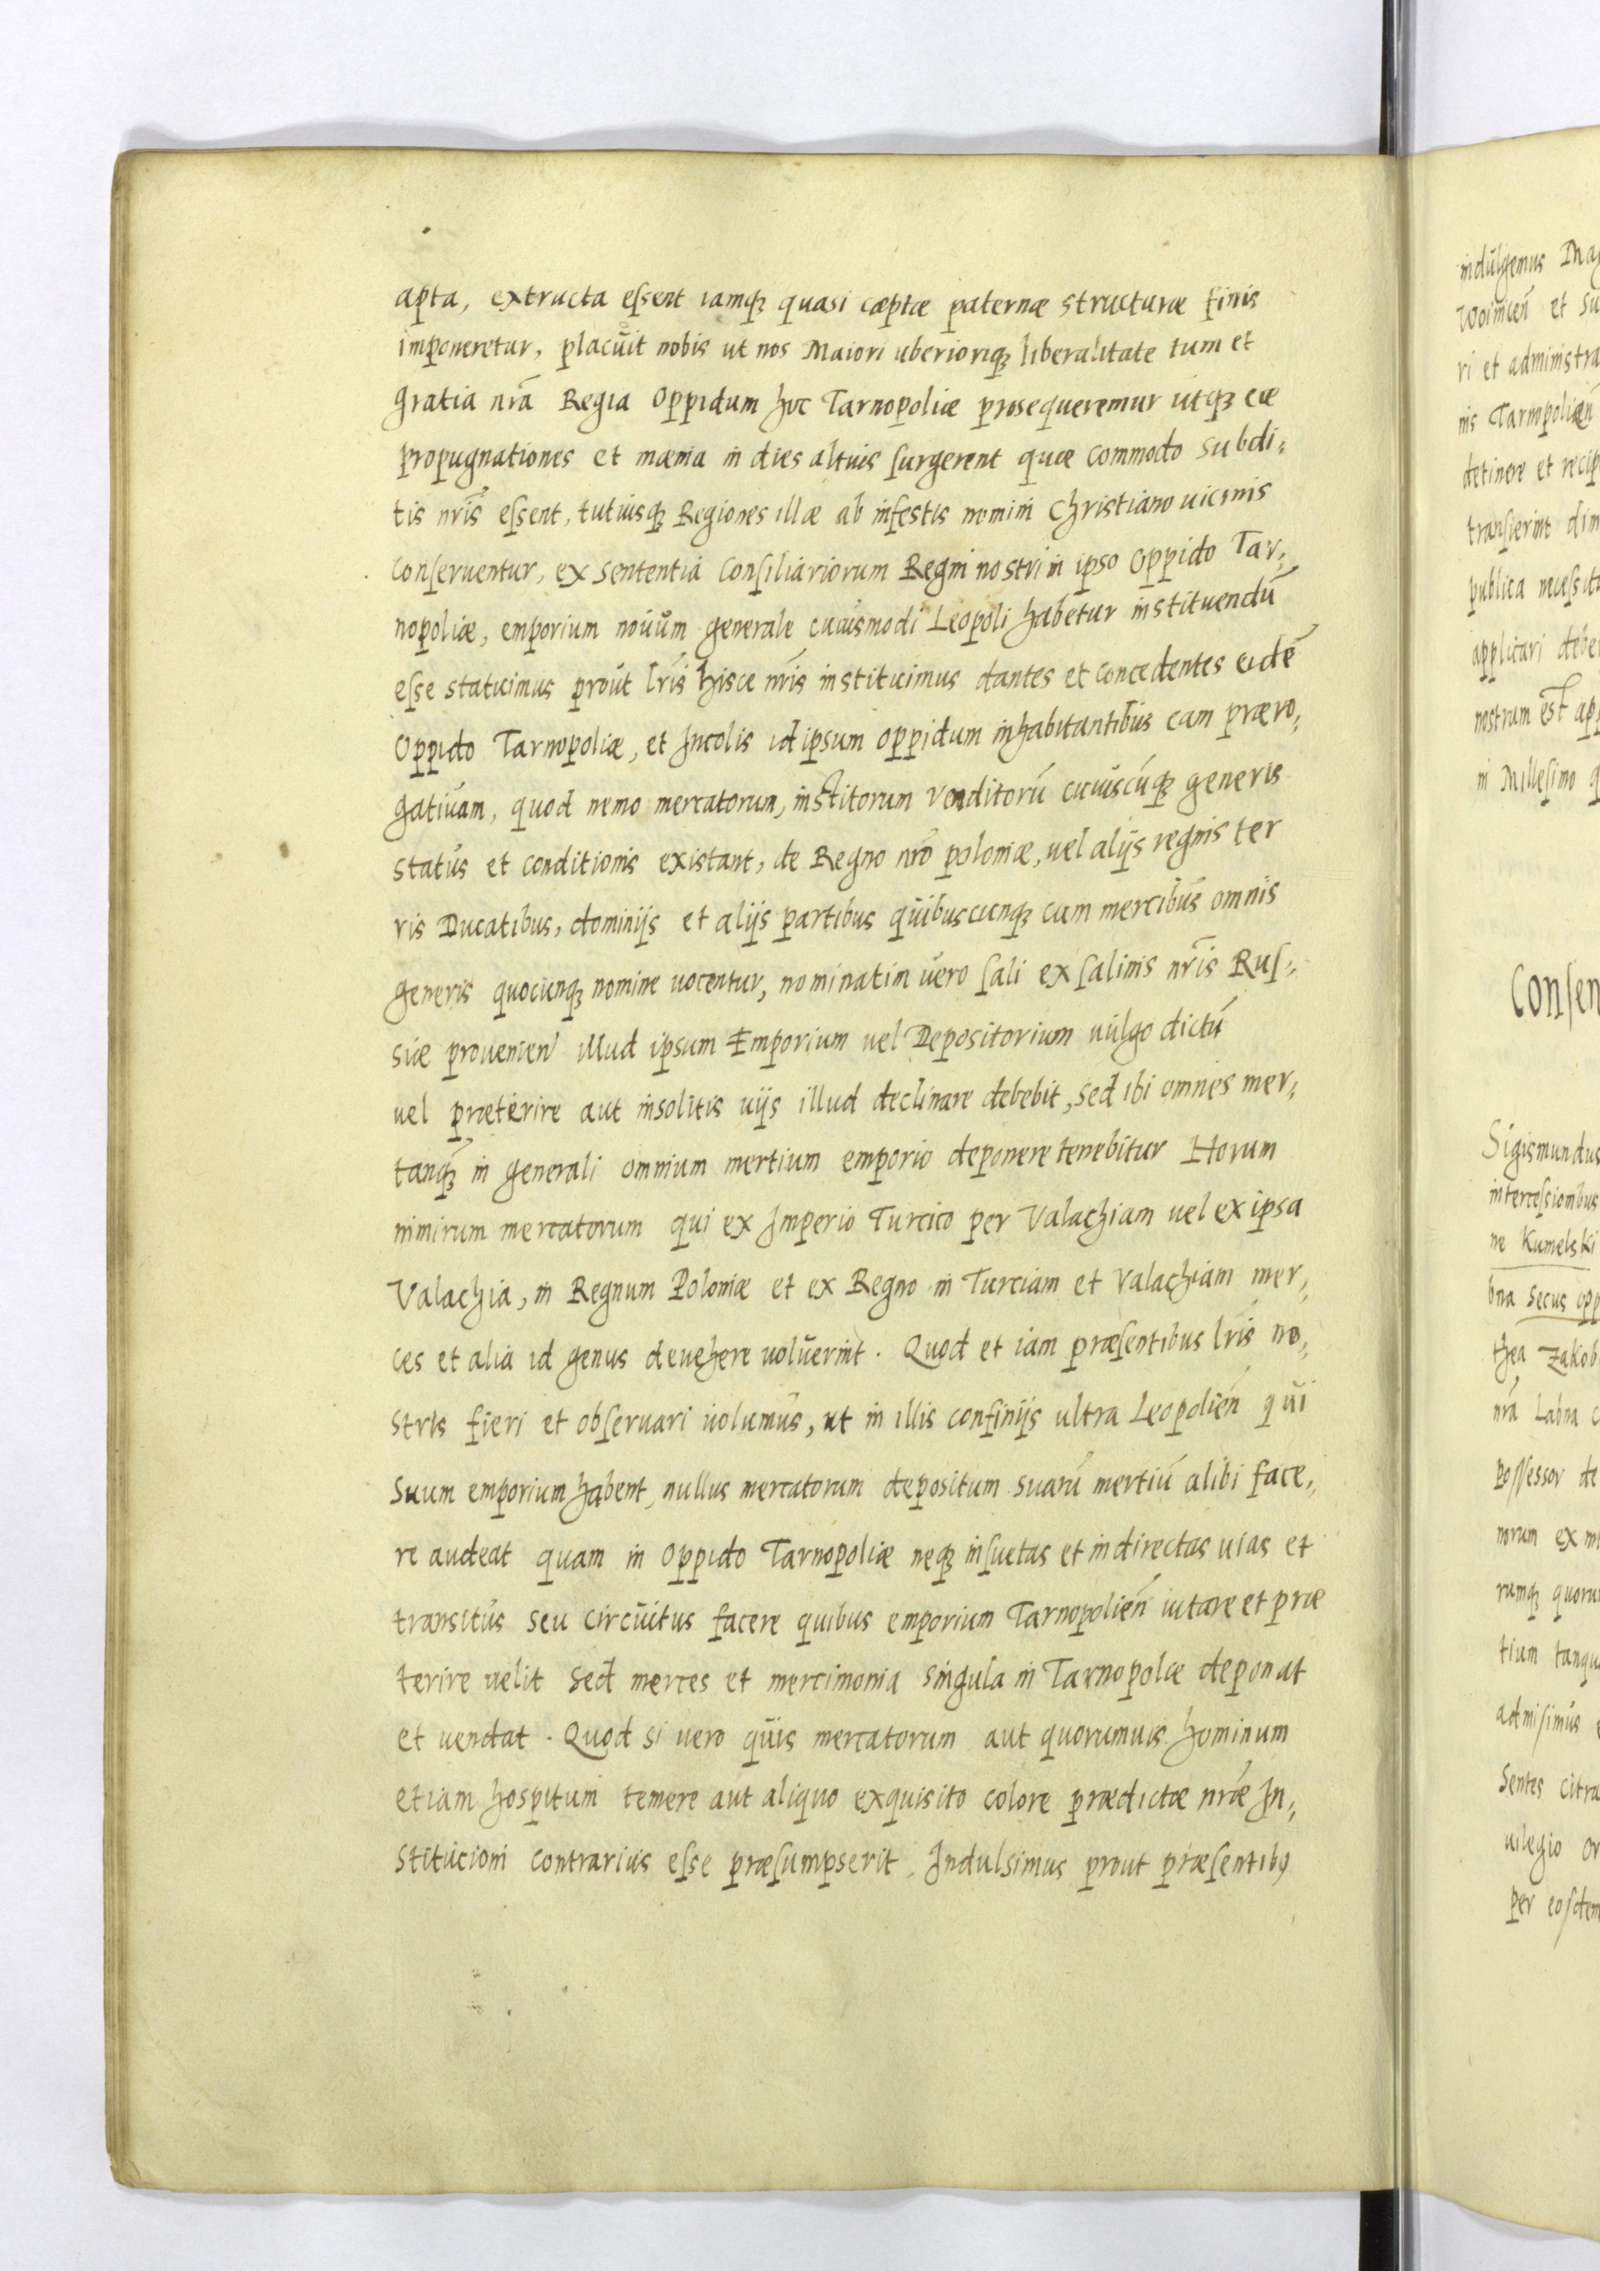 apta, extructa eſsent iamqꝫ quasi cæptæ paternæ structuræ finis
imponeretur, placuit nobis ut nos Maiori uberioriqꝫ liberalitate tum et
gratia nr̃a Regia Oppidum hoc Tarnopoliæ prosequeremur utqꝫ eæ
propugnationes et mænia in dies altius ſurgerent quæ commodo subdi,
tis nr̃is eſsent, tutiusqꝫ Regiones illæ ab infestis nomini Christiano uicinis
conſeruentur, ex sententia Conſiliariorum Regni nostri in ipso Oppido Tar,
nopoliæ, emporium nouum generale cuiusmodi Leopoli habetur instituendū
eſse statuimus prout lr̃is hisce nr̃is instituimus dantes et concedentes eidē
Oppido Tarnopoliæ, et Incolis idipsum oppidum inhabitantibus eam præro,
gatiuam, quod nemo mercatorum, institorum venditorū cuiuscūqꝫ generis
status et conditionis existant, de Regno nr̃o poloniæ, uel alijs regnis ter
ris Ducatibus, dominijs et alijs partibus quibuscunqꝫ cum mercibus omnis
generis quocunqꝫ nomine uocentur, nominatim uero ſali ex ſalinis nr̃is Ruſ,
siæ prouenien̄ illud ipsum Emporium uel Depositorium uulgo dictū
uel præterire aut insolitis uijs illud declinare debebit, sed ibi omnes mer,
tanqꝫ in generali omnium mertium emporio deponere tenebitur Horum
nimirum mercatorum qui ex Imperio Turcico per Valachiam uel ex ipsa
Valachia, in Regnum Poloniæ et ex Regno in Turciam et Valachiam mer,
ces et alia id genus deuehere uoluerint. Quod et iam præſentibus lr̃is no,
stris fieri et obſeruari uolumus, ut in illis confinijs ultra Leopolien̄ qui
suum emporium habent, nullus mercatorum depositum suarū mertiū alibi face,
re audeat quam in Oppido Tarnopoliæ neqꝫ inſuetas et indirectas uias et
transitus seu circuitus facere quibus emporium Tarnopolien̄ uitare et præ
terire uelit sed merces et mercimonia singula in Tarnopolæ deponat
et uendat. Quod si uero quis mercatorum aut quorumuis hominum
etiam hospitum temere aut aliquo exquisito colore prædictæ nr̃æ In,
stitucioni contrarius eſse præſumpserit, Indulsimus prout præſentibꝰ
indulgemus
et
ri et administra
nis Tarnpolien̄
detinere et recip
transierint
publica neceſsit
applicari debe
nostrum est
in Milleſimo q
Conſen
Sigismundus
interceſsionibus
ne Kumelski
bna secus opp
thea Zakob
nr̃a Labna c
poſſessor de
norum ex
rumqꝫ quoru
tium tanqu
admiſimus
sentes citra
uilegio or
per eoſdem